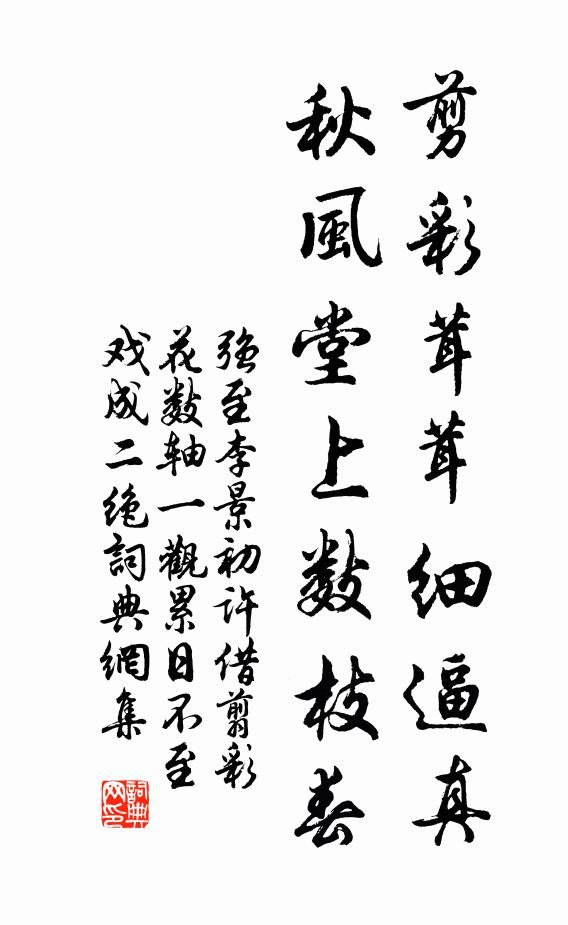 剪彩茸茸細逼真
秋風堂上数枝春
强至李景初许借剪彩
花数轴一觀累日不至
戏成二绝詞典網集
詞典
网印